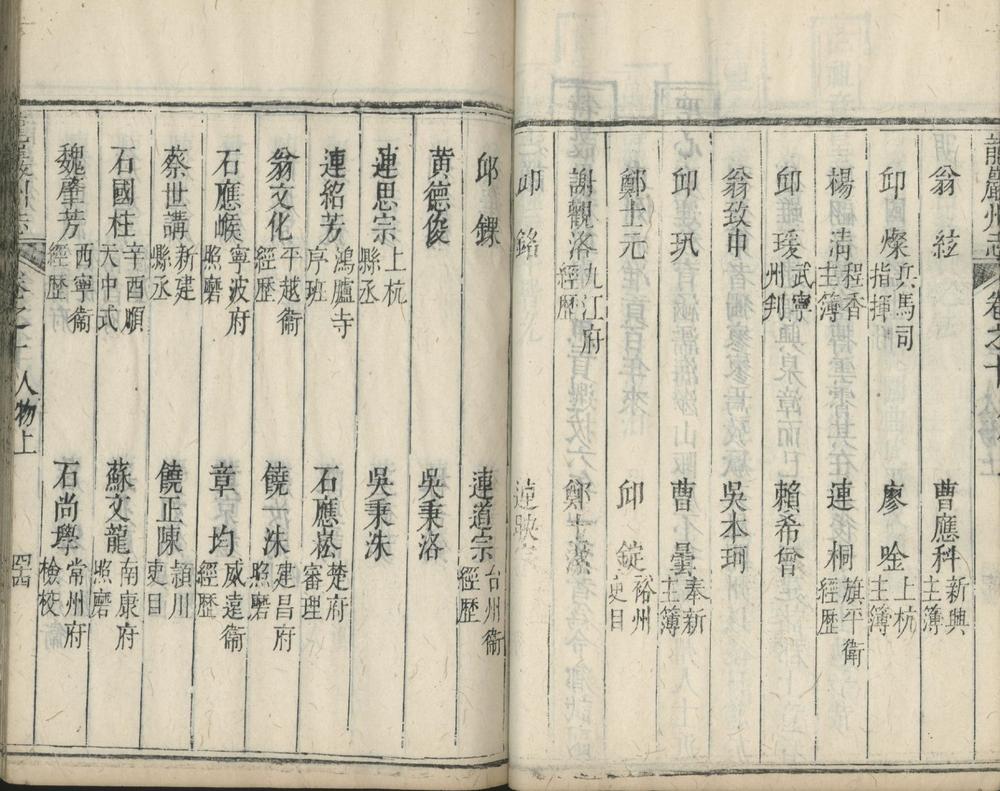 龍巖州志 卷之十
翁紘 曹應科 新興主簿
邱燦 兵馬司指揮 廖唫 上杭主簿
楊淸 程香主簿 連桐 旗平衛經歷
邱瑗 武寧州判 賴希曾
翁致中 吳本珂
邱玑 曹曇 奉新主簿
鄭士元 邱錠 裕州吏目
謝觀洛 九江府經歷 鄭士
邱銘 連映
邱錁 連道宗 台州衛經歷
黃德俊 吳秉洛
連思宗 上杭縣丞 吳秉洙
連紹芳 鴻臚寺序班 石應崧 楚府審理
翁文化 平越衛經歷 饒一洙 建昌府照磨
石應㬋 寧波府照磨 章均 威遠衛經歷
蔡世講 新建縣丞 饒正陳 潁川吏目
石國柱 辛酉順天中式 蘇文龍 南康府照磨
魏肇芳 西寧衛經歷 石尚學 常州府檢校
龍巖州志 卷之十 人物上 四